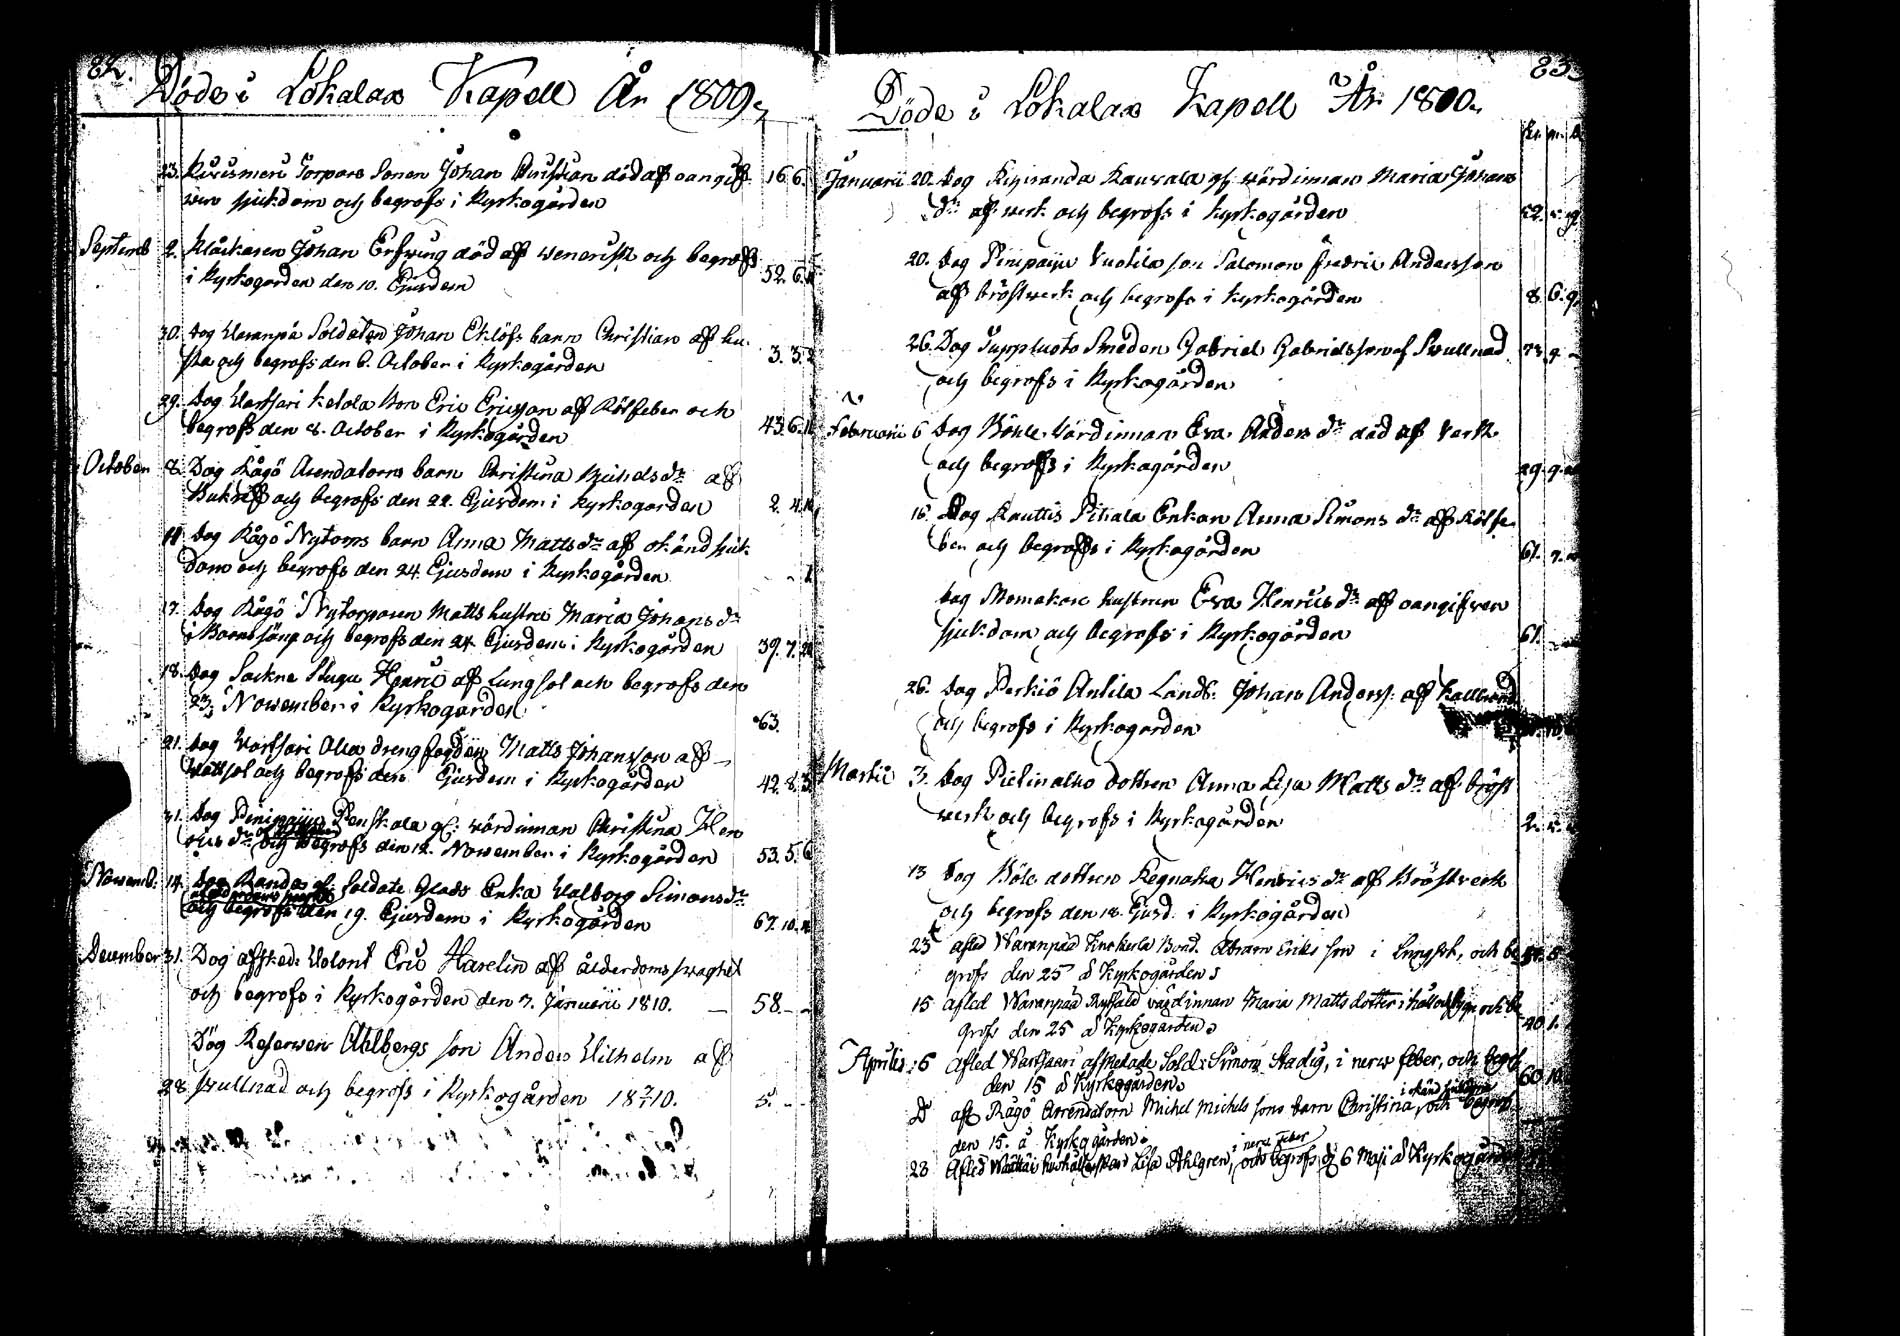 82.
Döde i Lokalax Kapell År 1809,
23. Torpare Sonen Johan Christian död af oangif 16. 6.
ven sjukdom och begrofs i Kyrkogården
Septemb 2. Klåckaren Johan Erfving död af venerisk och begrofs
i Kyrkogården den 10. Ejusdem 52. 6.
30. Dog Soldaten Johan Eklöfs barn Christian af hu
sta och begrofs den 6. October i Kyrkogården 3. 3.
29. Dog Wartsari Ketola Bon Eric Ericsson af Rötfeber och
begrofs den 8. October i Kyrkogården 43. 6.
October 8. Dog Rågö Arendatorns barn Christina Michelsdr af
Bukref och begrofs den 22. Ejusdem i Kyrkogården 2. 4.
14 Dog Rågö Nytorps barn Anna Mattsdr af okänd sjuk
dom och begrofs den 24. Ejusdem i Kyrkogården
17. Dog Rågö Nytorparen Matts hustru Maria Johansdr
i Barnsäng och begrofs den 24 Ejusdem i Kyrkogården 39. 7.
18. Dog Sockne Henric af Lungsot och begrofs den
23, November i Kyrkogården 63.
21. Dog Wartsari Matts Johansson af
och begrofs den Ejusdem i Kyrkogården 42. 8. 3
31. Dog Pinipaiju Penskala gl: värdinnan Christina Hen
rics dr och begrofs den 12. November i Kyrkogården 53. 5. 6
Novemb: 14. Dog Randas gl. Soldate Glads Enka Valborg Simonsdr
och begrofs den 19. Ejusdem i Kyrkogården 67. 10.
December 31. Dog afsked: Volont Eric Haselin af ålderdoms svaghet
och begrofs i Kyrkogården den 7. Januarii 1810. 58.
Dog Reserven Ahlbergs son Anders Vilhelm af
28. svullnad och begrofs i Kyrkogården 18 10. 5.
83.
Döde i Lokalax Kapell År 1810.
Januarii 20. Dog Kauvala gl. värdinnan Maria Johans
dr af verk och begrofs i Kyrkogården 52.
20. Dog Pinipaiju Vuotila son Salomon Fredric Andersson
af bröstverk och begrofs i Kyrkogården 8. 6. 9
26. Dog Suppluoto Smeden Gabriel Gabrielsson af Svullnad 73 9
och begrofs i Kyrkogården
Februarii 6 Dog Värdinnan Eva Anders dr död af Verk
och begrofs i Kyrkogården 29. 9.
16 Dog Kauttis Pihala Enkan Anna Simons dr af Rötfe
ber och begrofs i Kyrkogården 61. 7.
Dog Skomakare hustrun Eva Henrics dr af oangifven
sjukdom och begrofs i Kyrkogården 61.
26. Dog Perkiö Antila Landb: Johan Anders: af Kallbrand
och begrofs i Kyrkogården
Martii 3. Dog dottren Anna Lisa Matts dr af bröst
verk och begrofs i Kyrkogården 2.
13 Dog dottren Regnata Henrics dr af Bröstverk
och begrofs den 18. Ejusd. i Kyrkogården
23 afled Waranpää Bond. Abram Eriks son i Lungsot, och be
grofs den 25 å Kyrkogården
15 afled Waranpää värdinnan Maria Matts dotter i och be
grofs den 25 å Kyrkogården 40 1.
Aprilis 5 afled Wartsaari afskedade Sold: Simon Stadig, i nerv feber, och begrof
den 15 å Kyrkogården 60 10
D afl Rågö Arrendatorn Michel Michels sons barn Christina, i okänd sjukdom och begrof
den 15. å Kyrkogården
28 Afled hushållerskan Lisa Ahlgren, i nerv feber och begrofs d. 6 Maji å Kyrkogården